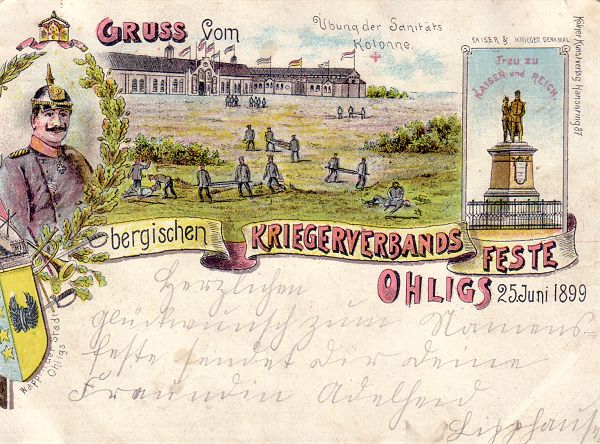 GRUSS vom
Übung der Sanitäts
Kolonne.
KAISER & KRIEGER DENKMAL
Treu zu
KAISER und REICH
Kölner Kunstverlag Hansaring 87
bergischen KRIEGERVERBANDS FESTE
OHLIGS 25. Juni 1899
Wappen der Stadt
Ohligs
Herzlichen
Glückwunsch zum Namens-
feste sendet der deine
Freundin Adelheid